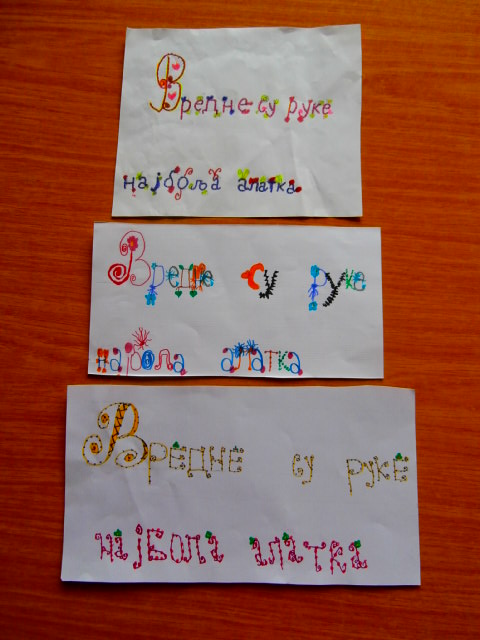 Вредне су руке
најбоља алатка.
Вредне су руке
најбола алатка
Вредне су руке
најбола алатка